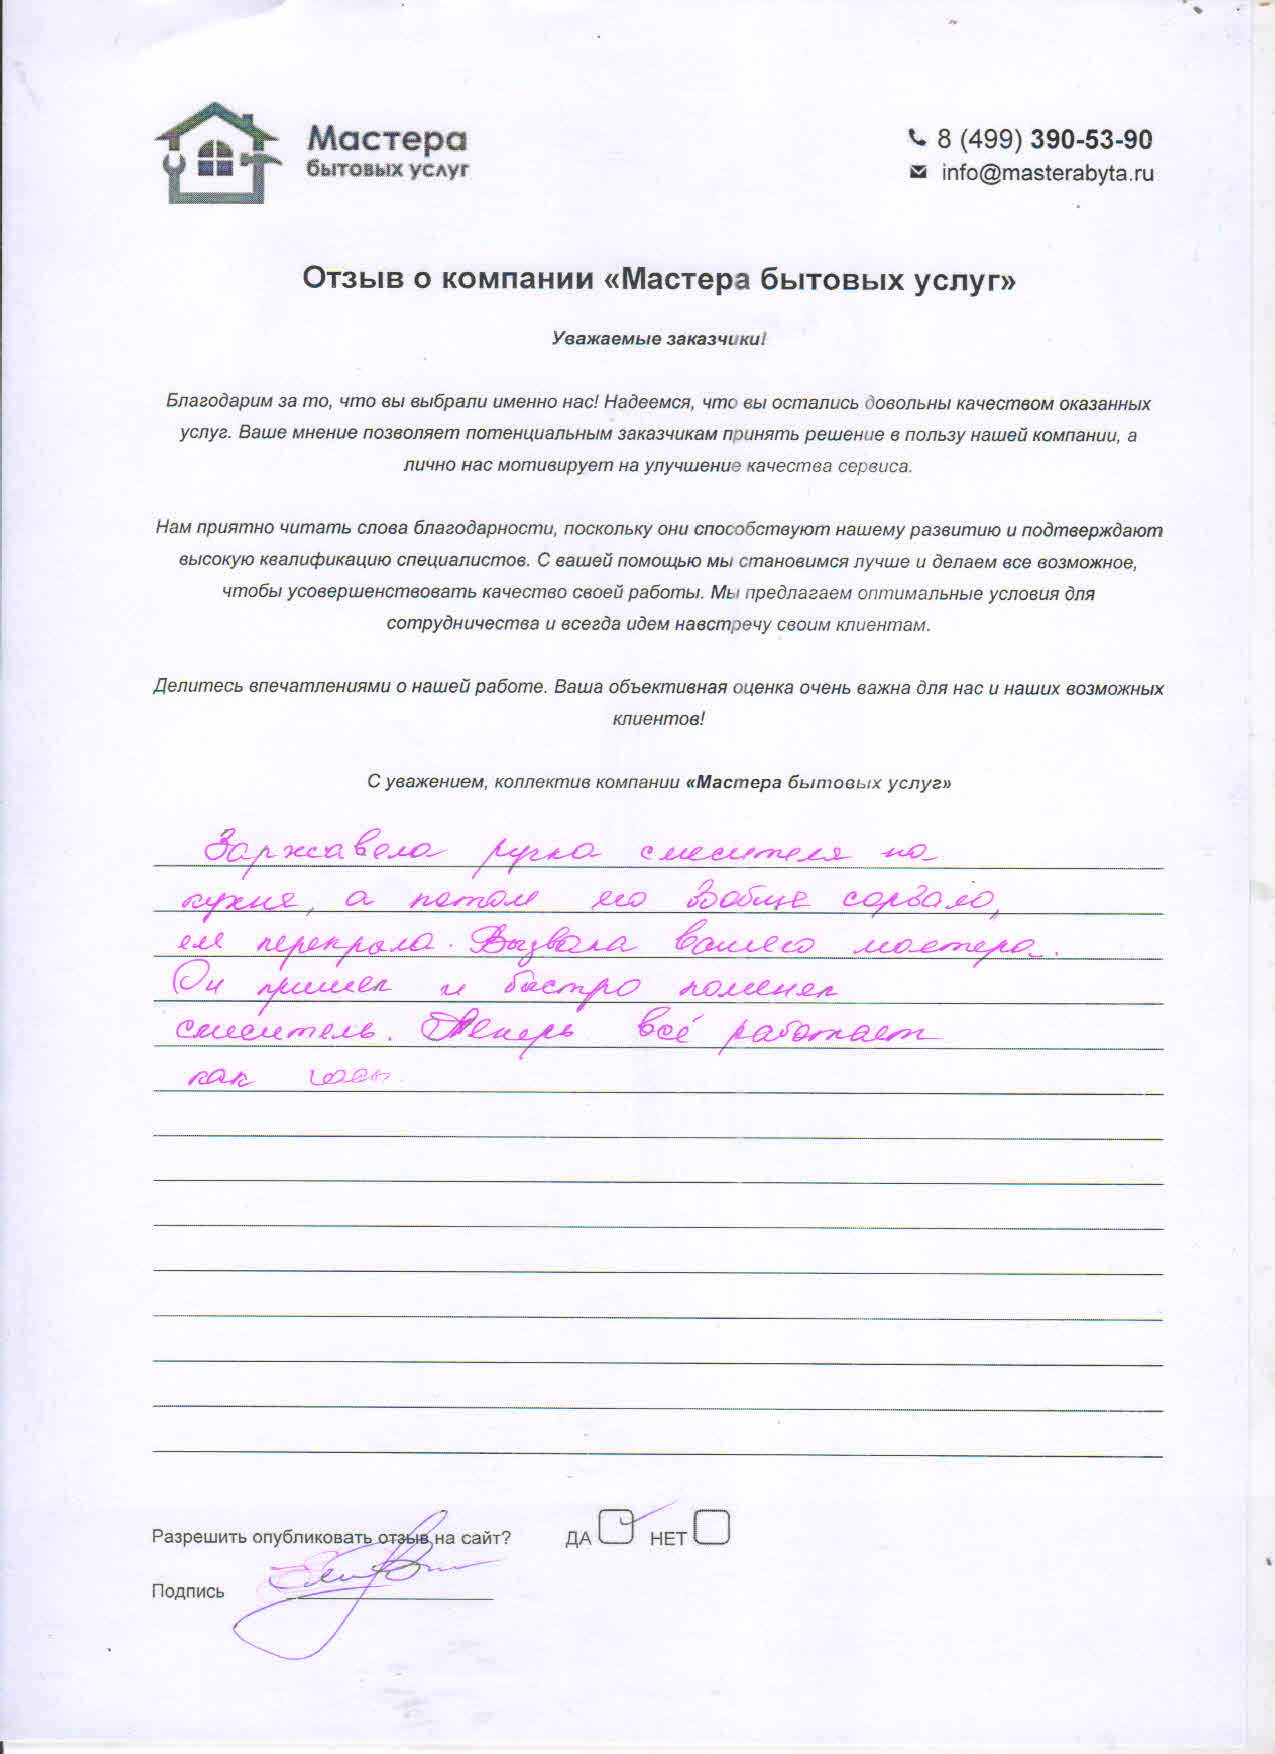 Мастера
бытовых услуг
8 (499) 390-53-90
info@masterabyta.ru
Отзыв о компании «Мастера бытовых услуг»
Уважаемые заказчики!
Благодарим за то, что вы выбрали именно нас! Надеемся, что вы остались довольны качеством оказанных
услуг. Ваше мнение позволяет потенциальным заказчикам принять решение в пользу нашей компании, а
лично нас мотивирует на улучшение качества сервиса.
Нам приятно читать слова благодарности, поскольку они способствуют нашему развитию и подтверждают
высокую квалификацию специалистов. С вашей помощью мы становимся лучше и делаем все возможное,
чтобы усовершенствовать качество своей работы. Мы предлагаем оптимальные условия для
сотрудничества и всегда идем навстречу своим клиентам.
Делитесь впечатлениями о нашей работе. Ваша объективная оценка очень важна для нас и наших возможных
клиентов!
С уважением, коллектив компании «Мастера бытовых услуг»
Заржавела ручка смесителя на
кухне, а потом его вообще сорвало,
еле перекрыла. Вызвала вашего мастера.
Он пришел и быстро поменял
смеситель. Теперь всё работает
как
Разрешить опубликовать отзыв на сайт? ДА НЕТ
Подпись